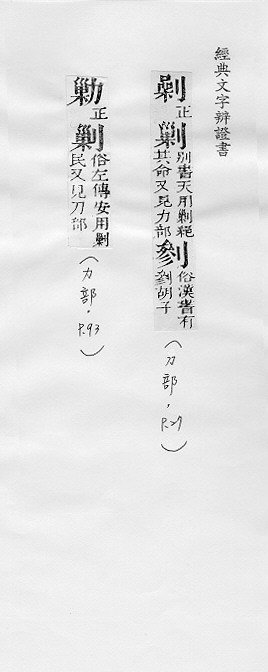 經典文字辨證書
劋正剿別書天用剿絕其命又見力部
俗漢書有胡子
(刀部,P.27)
勦正剿俗左傳安用剿民又見刀部
(力部,P.93)